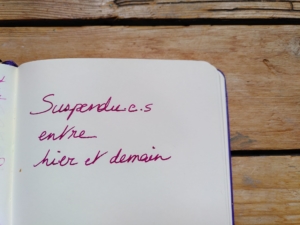 Suspendu.e.s
entre
hier et demain